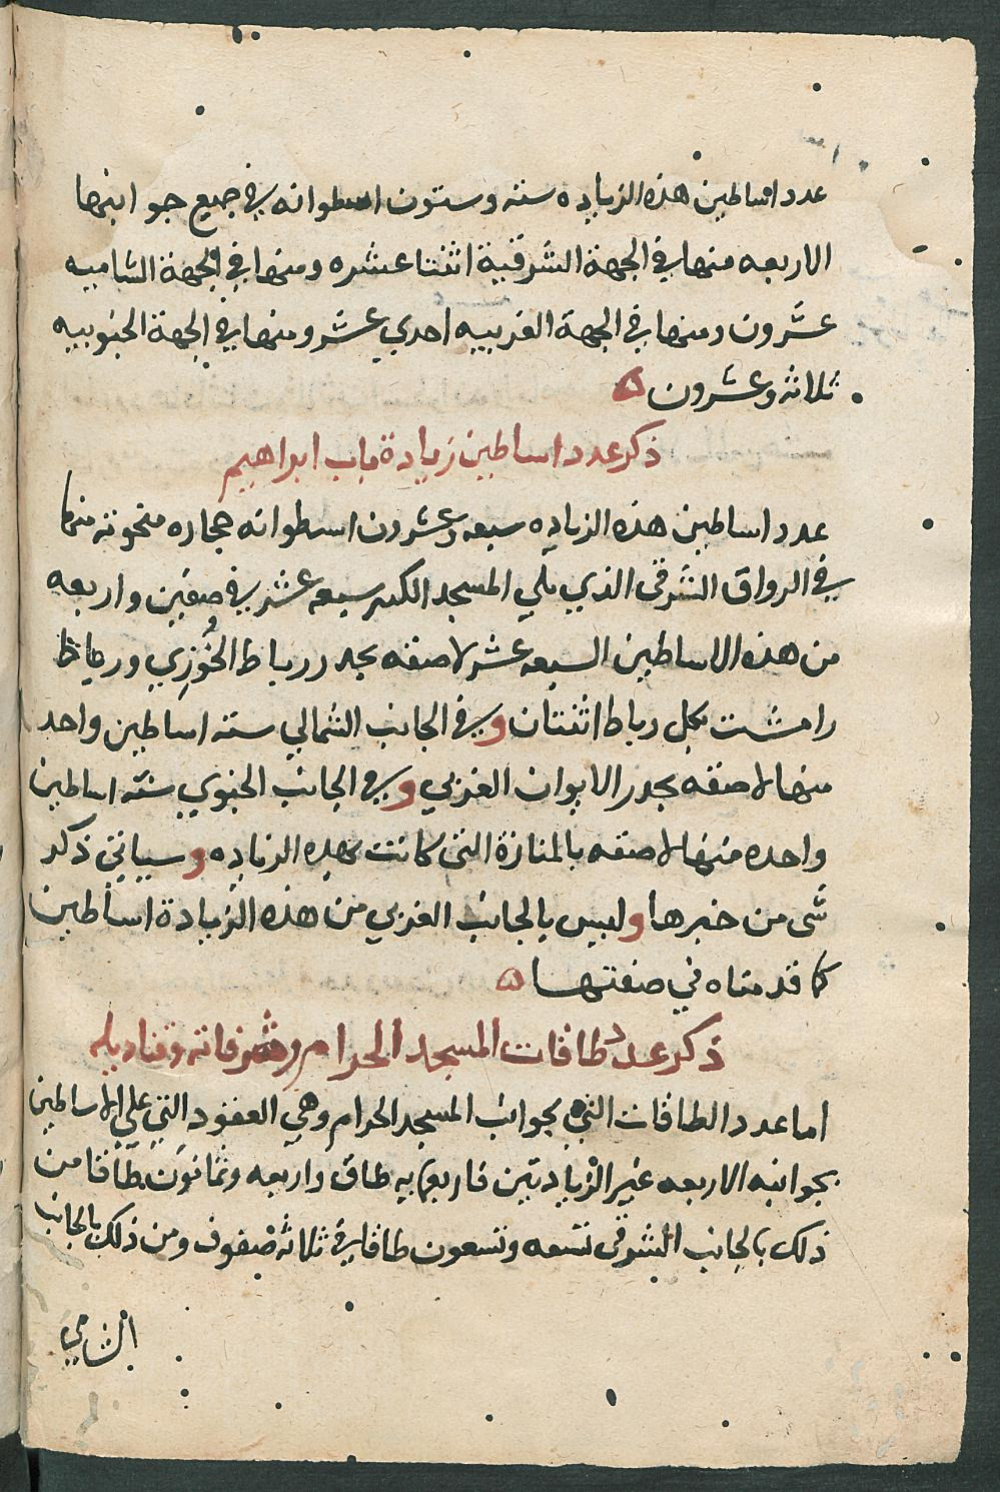 عدد اساطين هذه الزياده سته وستون اسطوانه في جميع جوانبها
الاربعه منها في الجهة الشرقية اثنتا عشره ومنها في الجهة الشاميه
عشرون ومنها في الجهة الغربيه احدي عشر ومنها في الجهة الجنوبيه
ثلاثه وعشرون ه
ذكر عدد اساطين زيادة باب ابراهيم
عدد اساطين هذه الزياده سبعه وعشرون اسطوانه حجاره منحوته منها
في الرواق الشرقى الذي يلي المسجد الكبير سبعه عشر في صفين واربعه
من هذه الاساطين السبعه عشر لاصقه بجدر رباط الخُوزي ورباط
رامشت بكل رباط اثنتان وفي الجانب الشمالي سته اساطين واحد
منها لاصقه بجدر الايوان الغربي وفي الجانب الجنوبي سته اساطين
واحده منها لاصقه بالمنارة التى كانت بهذه الزياده وسياتى ذكر
شى من خبرها وليس بالجانب الغربي من هذه الزيادة اساطين
كما قدمناه في صفتها ه
ذكر عدد طاقات المسجد الحرام وشرفاته وقناديله
اما عدد الطاقات التى بجوانب المسجد الحرام وهي العقود التى علي الاساطين
بجوانبه الاربعه غير الزيادتين فاربعمايه طاق واربعه وثمانون طاقا من
ذلك بالجانب الشرقى تسعه وتسعون طاقا في ثلاثه صفوف ومن ذلك بالجانب
الشامي